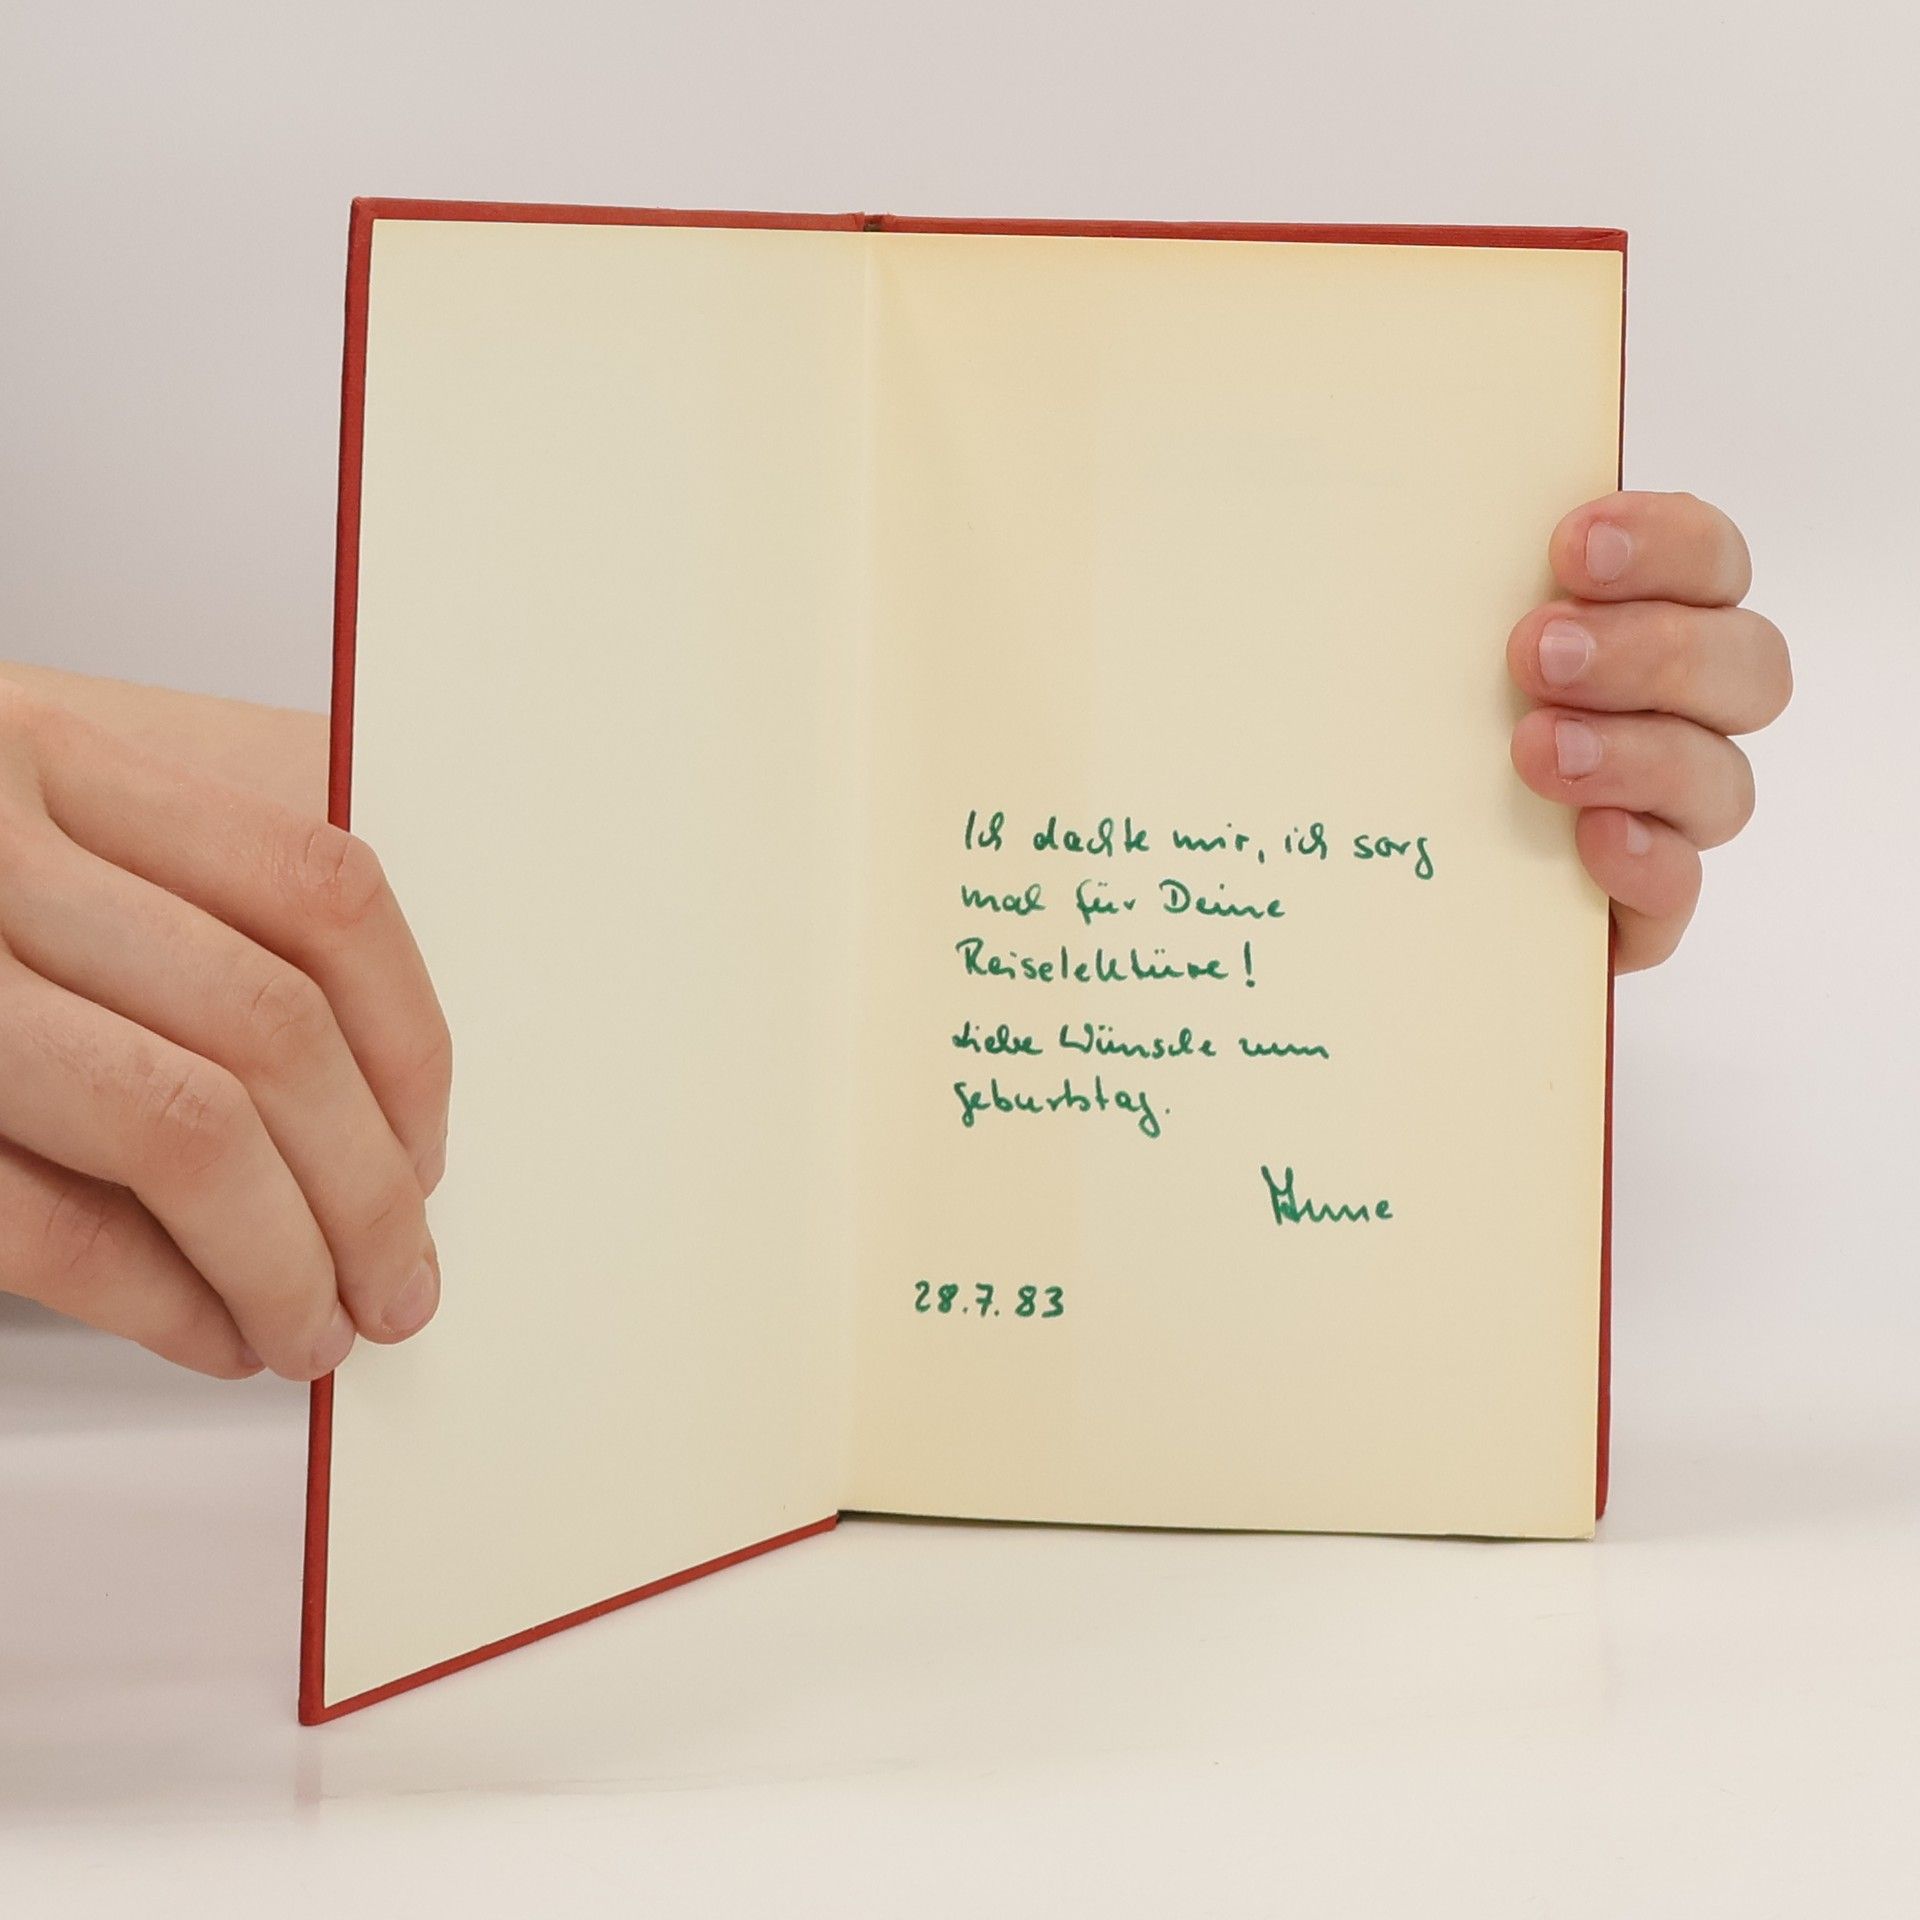 Ich dachte mir, ich sorg
mal für Deine
Reiselektüre!
Liebe Wünsche zum
Geburtstag.
Anne
28.7.83